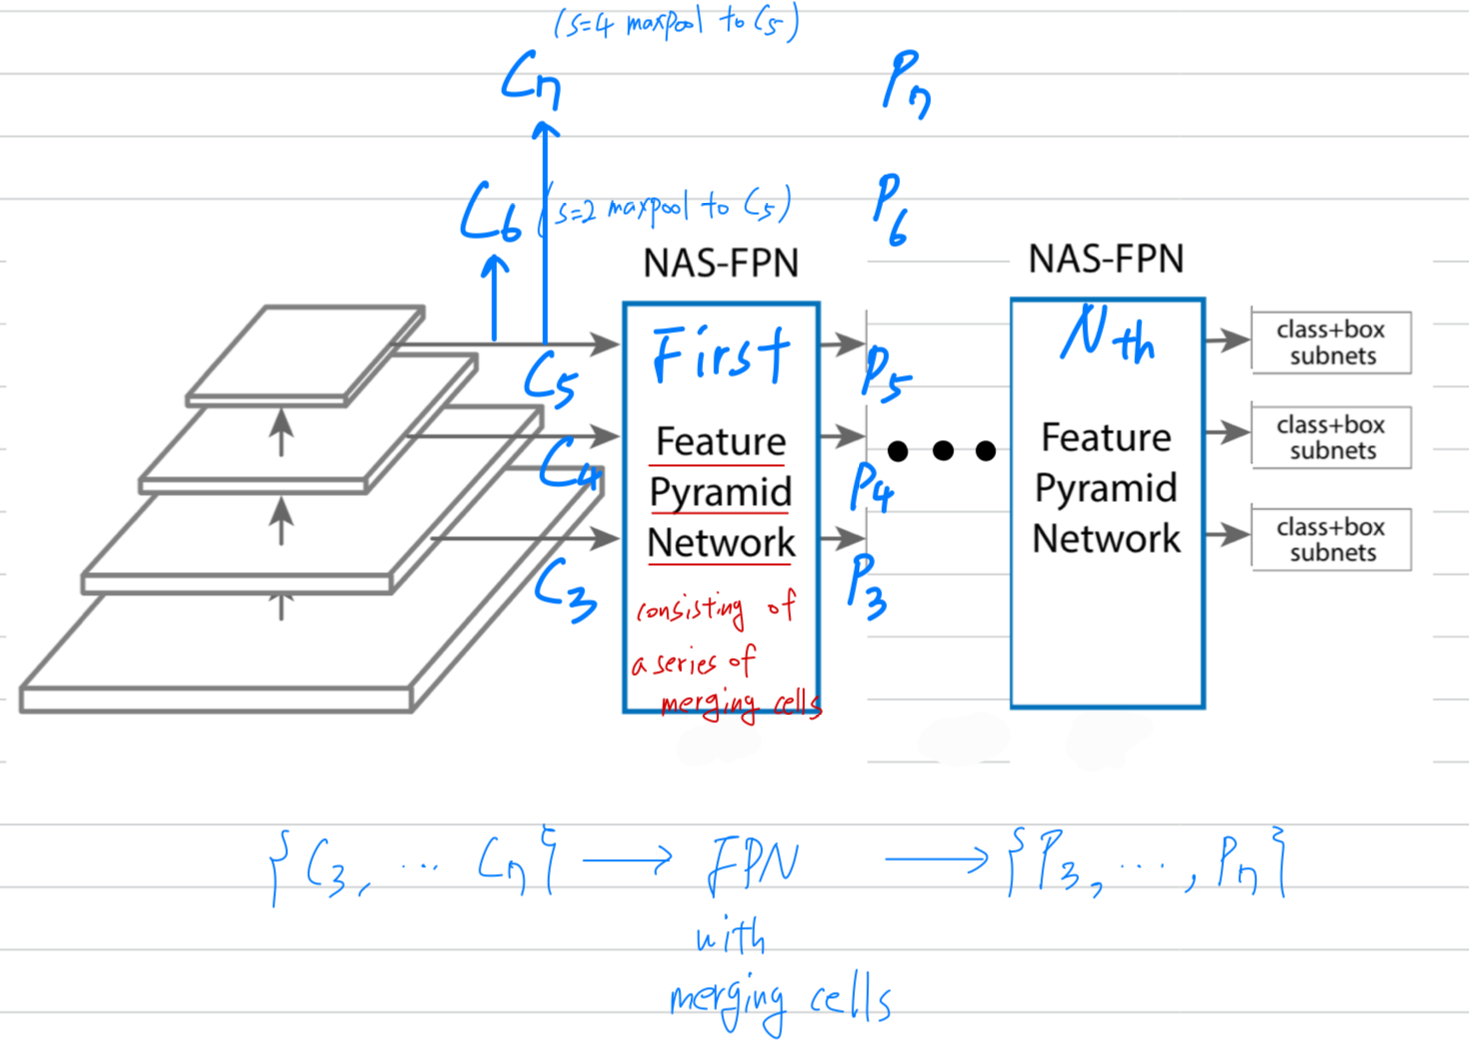 (s=4 maxpool to C5)
C7
P7
C6 (s=2 maxpool to C5)
P6
NAS-FPN
NAS-FPN
C5
C4
C3
First
Feature
Pyramid
Network
consisting of
a series of
merging cells
P5
P4
P3
Nth
Feature
Pyramid
Network
class+box
subnets
class+box
subnets
class+box
subnets
{C3, ... C7} → FPN → {P3, ..., P7}
with
merging cells